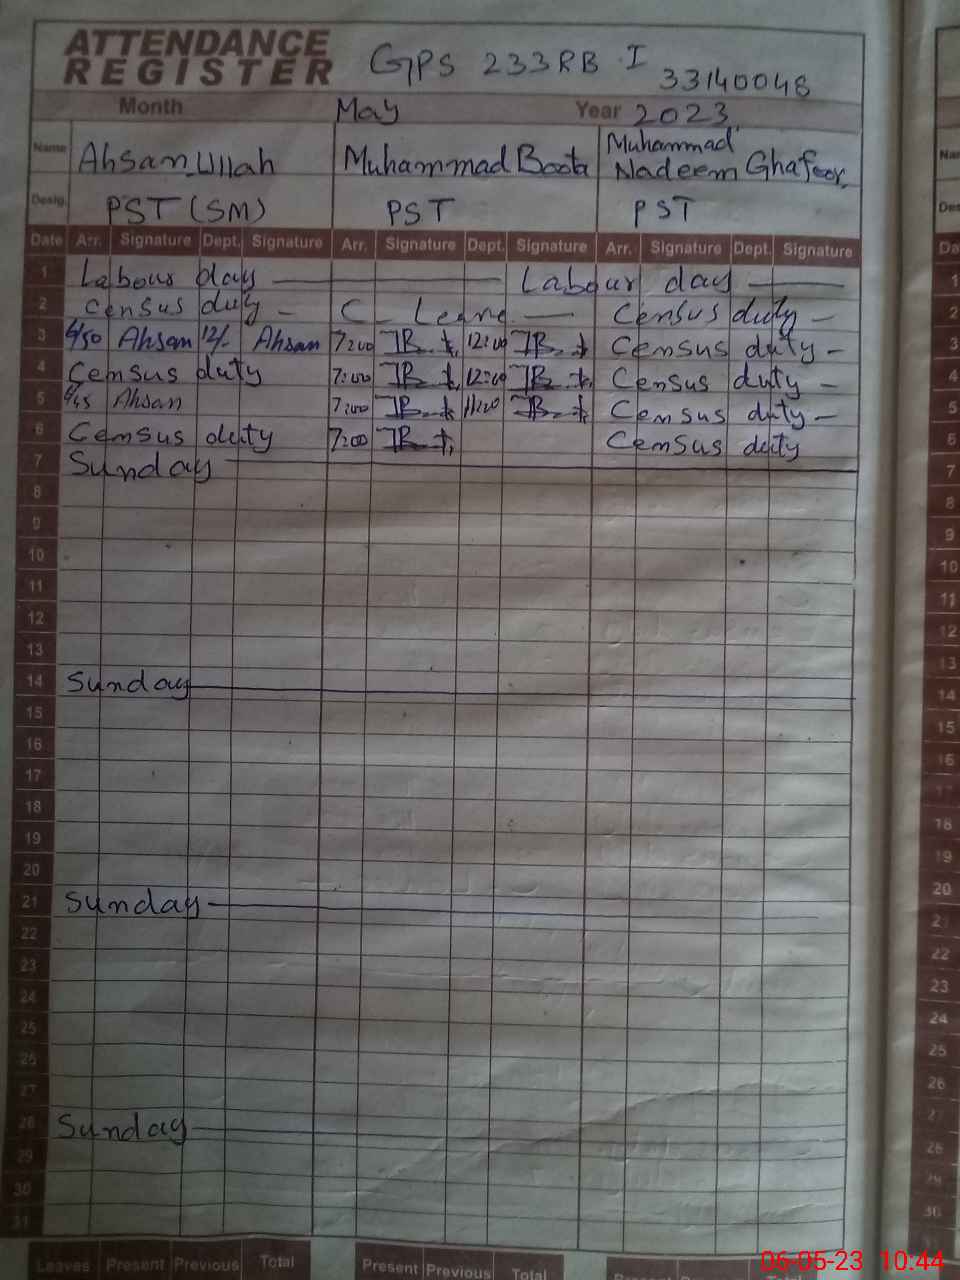 ATTENDANCE REGISTER GPS 233RB I 33140048
Month May Year 2023
Name Ahsan Ullah Muhammad Boota Muhammad Nadeem Ghafoor
Desig. PST (SM) PST PST
Date Arr. Signature Dept. Signature Arr. Signature Dept. Signature Arr. Signature Dept. Signature
1 Labour day Labour day
2 Census duty C Leave Census duty
3 6/50 Ahsan 12/- Ahsan 7:00 12:00 Census duty
4 Census duty 7:00 12:00 Census duty
5 6/45 Ahsan 7:00 11:20 Census duty
6 Census duty 7:00 Census duty
7 Sunday 7
8 8
9 9
10 10
11 11
12 12
13 13
14 Sunday 14
15 15
16 16
17 17
18 18
19 19
20 20
21 Sunday 21
22 22
23 23
24 24
25 25
26 26
27 27
28 Sunday 28
29 29
30 30
31
Leaves Present Previous Total Present Previous Total
06-05-23 10:44